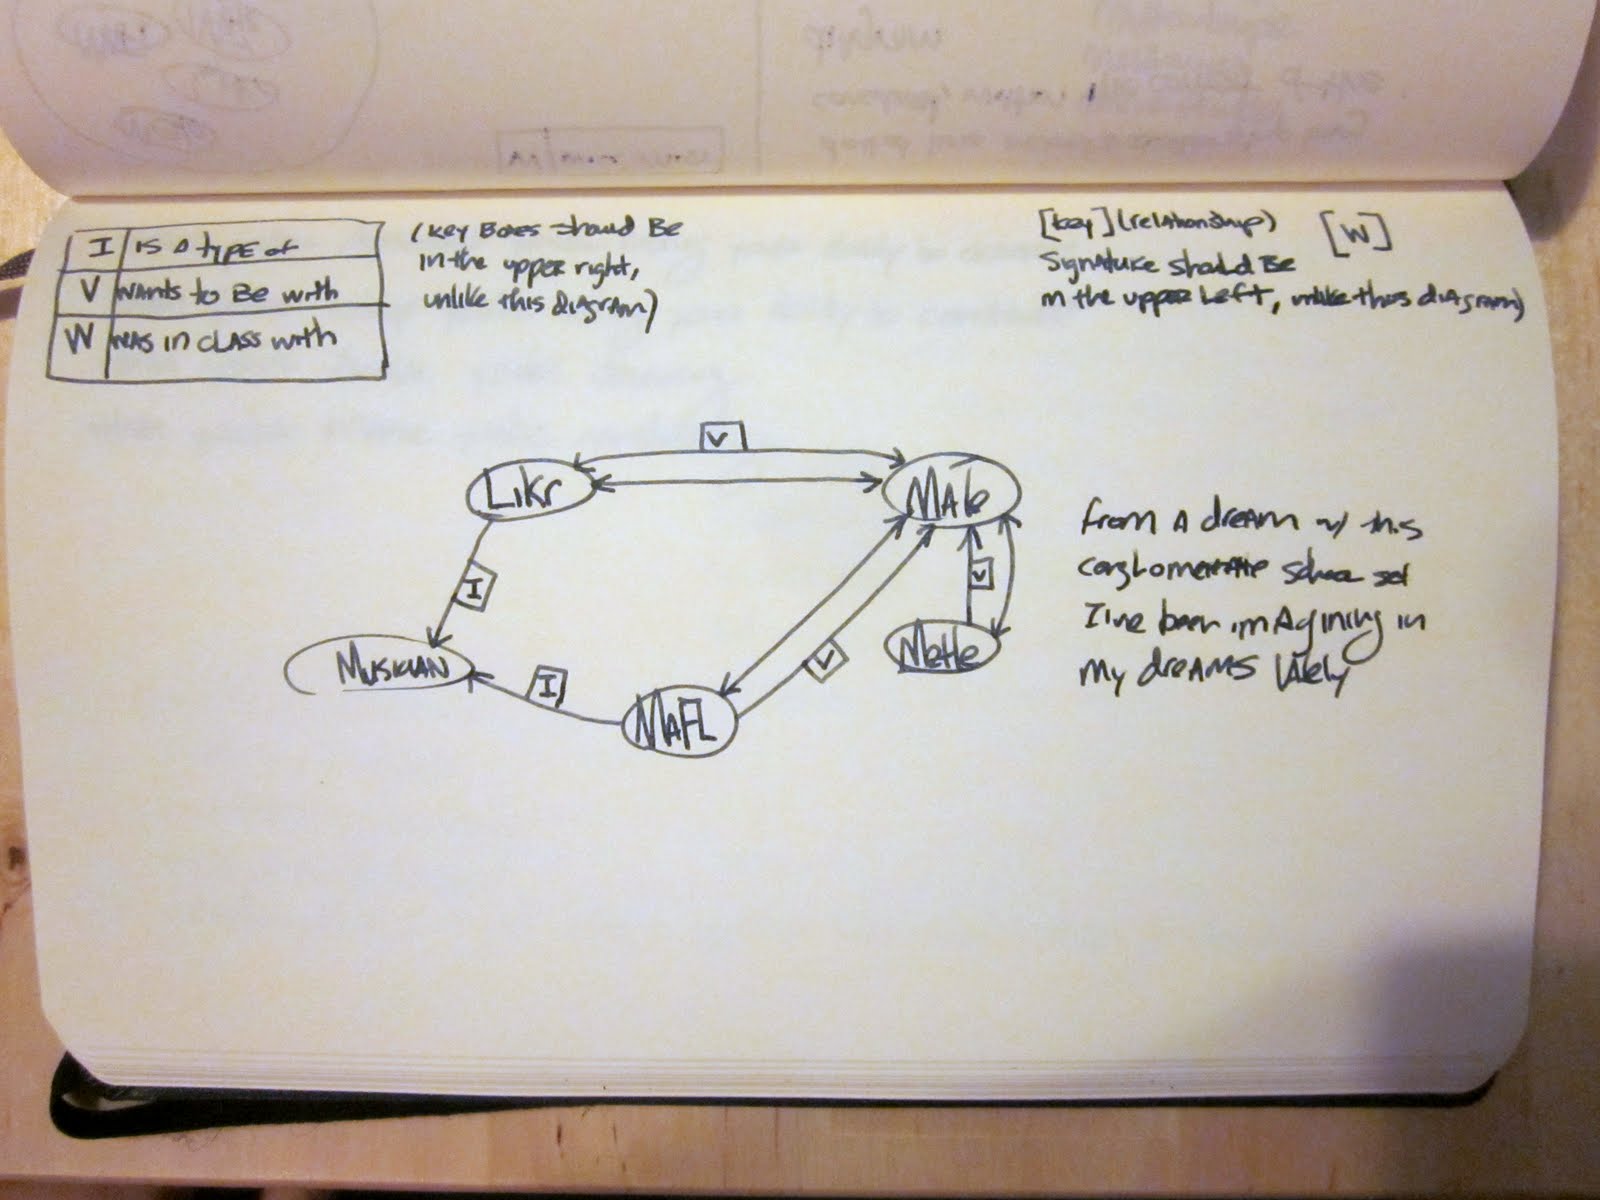 I is A type of
V wants to Be with
W was in class with
(key Boxes should Be
in the upper right,
unlike this diagram)
[key](relationship) [W]
Signature should Be
in the upper left, unlike this diagram)
V
Likr
I
V
I
V
Metle
Musician
MAFL
from A dream w/ this
conglomerate school set
I've been imagining in
my dreams lately